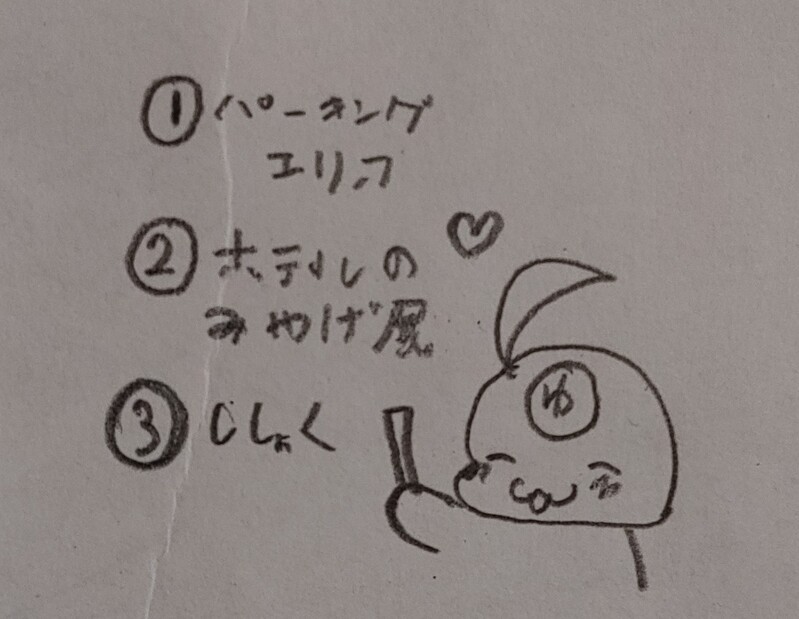 ① パーキング
エリア
② ホテルの
みやげ屋
③
ゆ